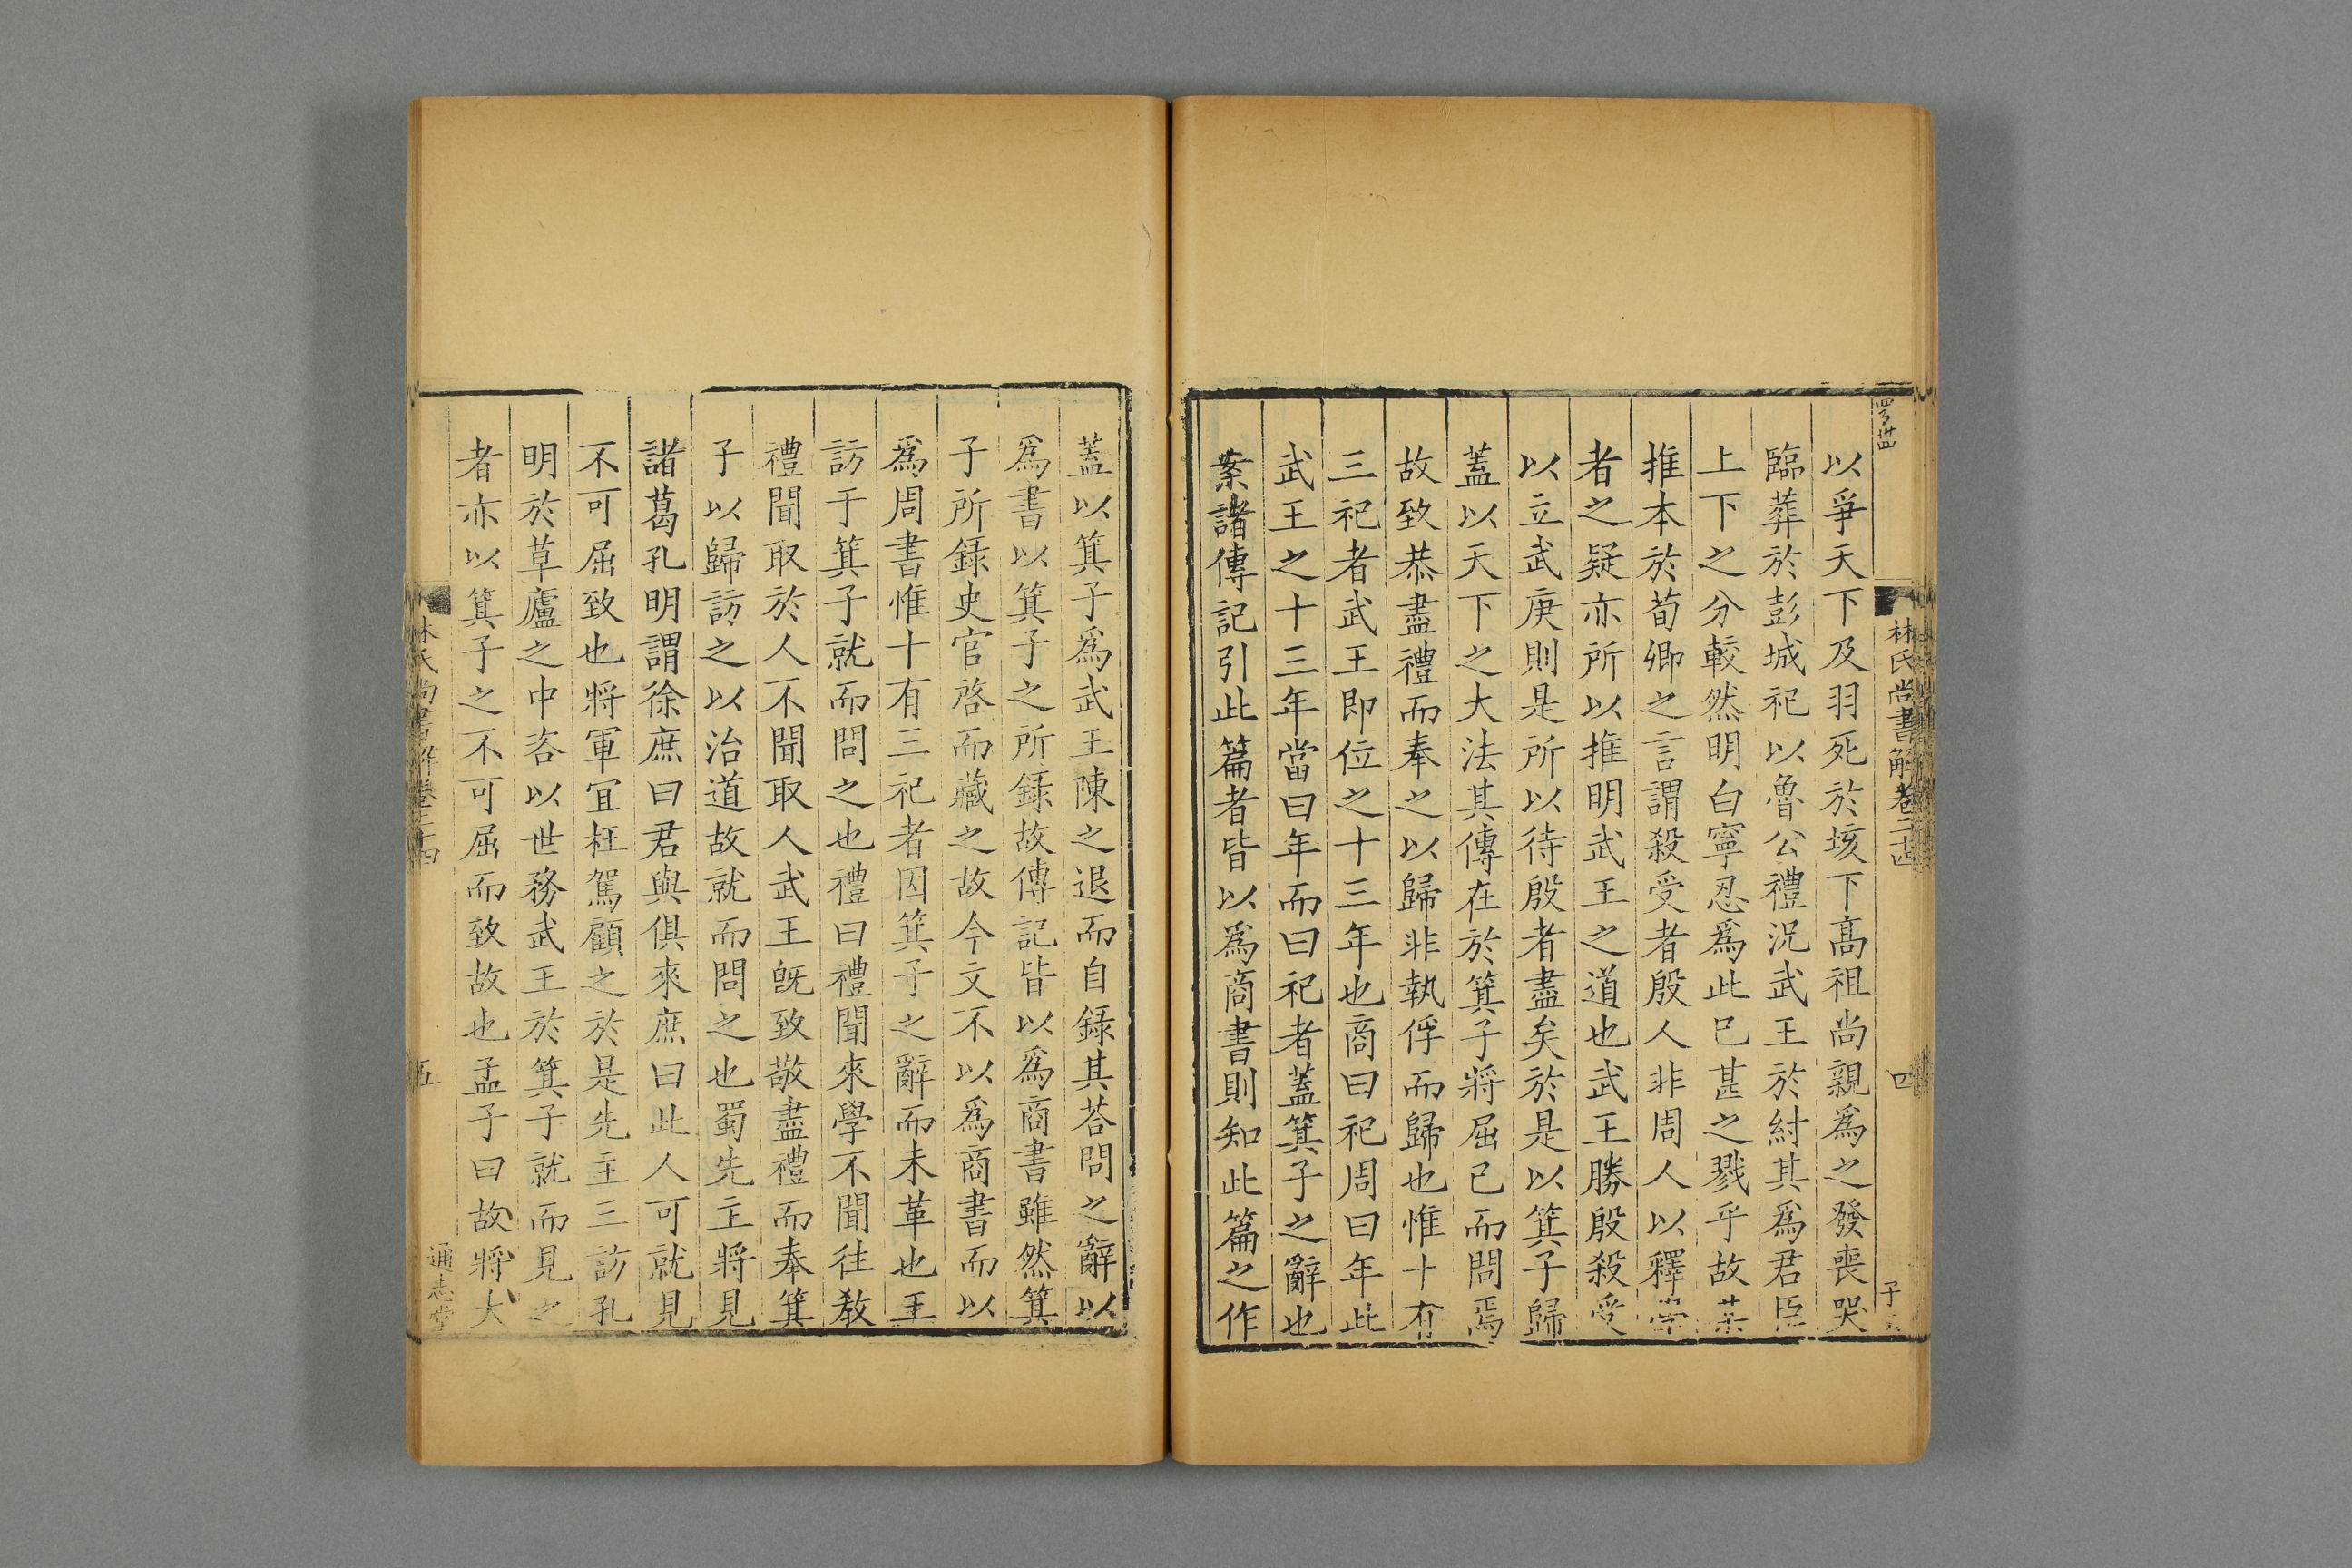 林氏尚書解卷二十四
四
以爭天下及羽死於垓下高祖尚親爲之發喪哭
臨葬於彭城祀以魯公禮況武王於紂其爲君臣
上下之分較然明白寧忍爲此已甚之戮乎故
推本於荀卿之言謂殺受者殷人非周人以釋學
者之疑亦所以推明武王之道也武王勝殷殺受
以立武庚則是所以待殷者盡矣於是以箕子歸
蓋以天下之大法其傳在於箕子將屈已而問焉
故致恭盡禮而奉之以歸非執俘而歸也惟十有
三祀者武王即位之十三年也商曰祀周曰年此
武王之十三年當曰年而曰祀者蓋箕子之辭也
案諸傳記引此篇者皆以爲商書則知此篇之作
蓋以箕子爲武王陳之退而自録其荅問之辭以
爲書以箕子之所録故傳記皆以爲商書雖然箕
子所録史官啓而藏之故今文不以爲商書而以
爲周書惟十有三祀者因箕子之辭而未革也王
訪于箕子就而問之也禮曰禮聞來學不聞往教
禮聞取於人不聞取人武王旣致敬盡禮而奉箕
子以歸訪之以治道故就而問之也蜀先主將見
諸葛孔明謂徐庶曰君與俱來庶曰此人可就見
不可屈致也將軍宜枉駕顧之於是先主三訪孔
明於草廬之中咨以世務武王於箕子就而見之
者亦以箕子之不可屈而致故也孟子曰故將大
林氏尚書解卷二十四
五
通志堂